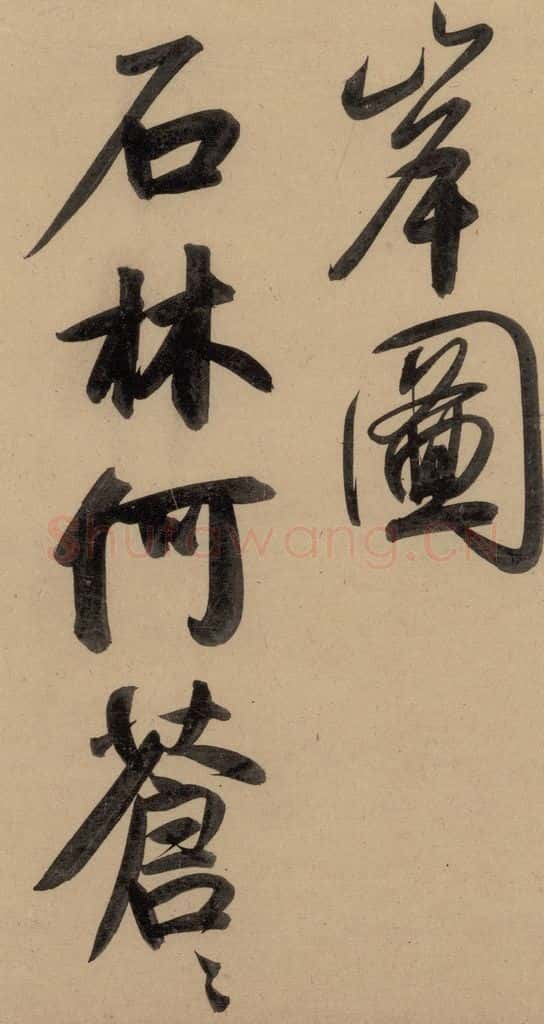 岸圖
石林何蒼〻
Shufawang.CN